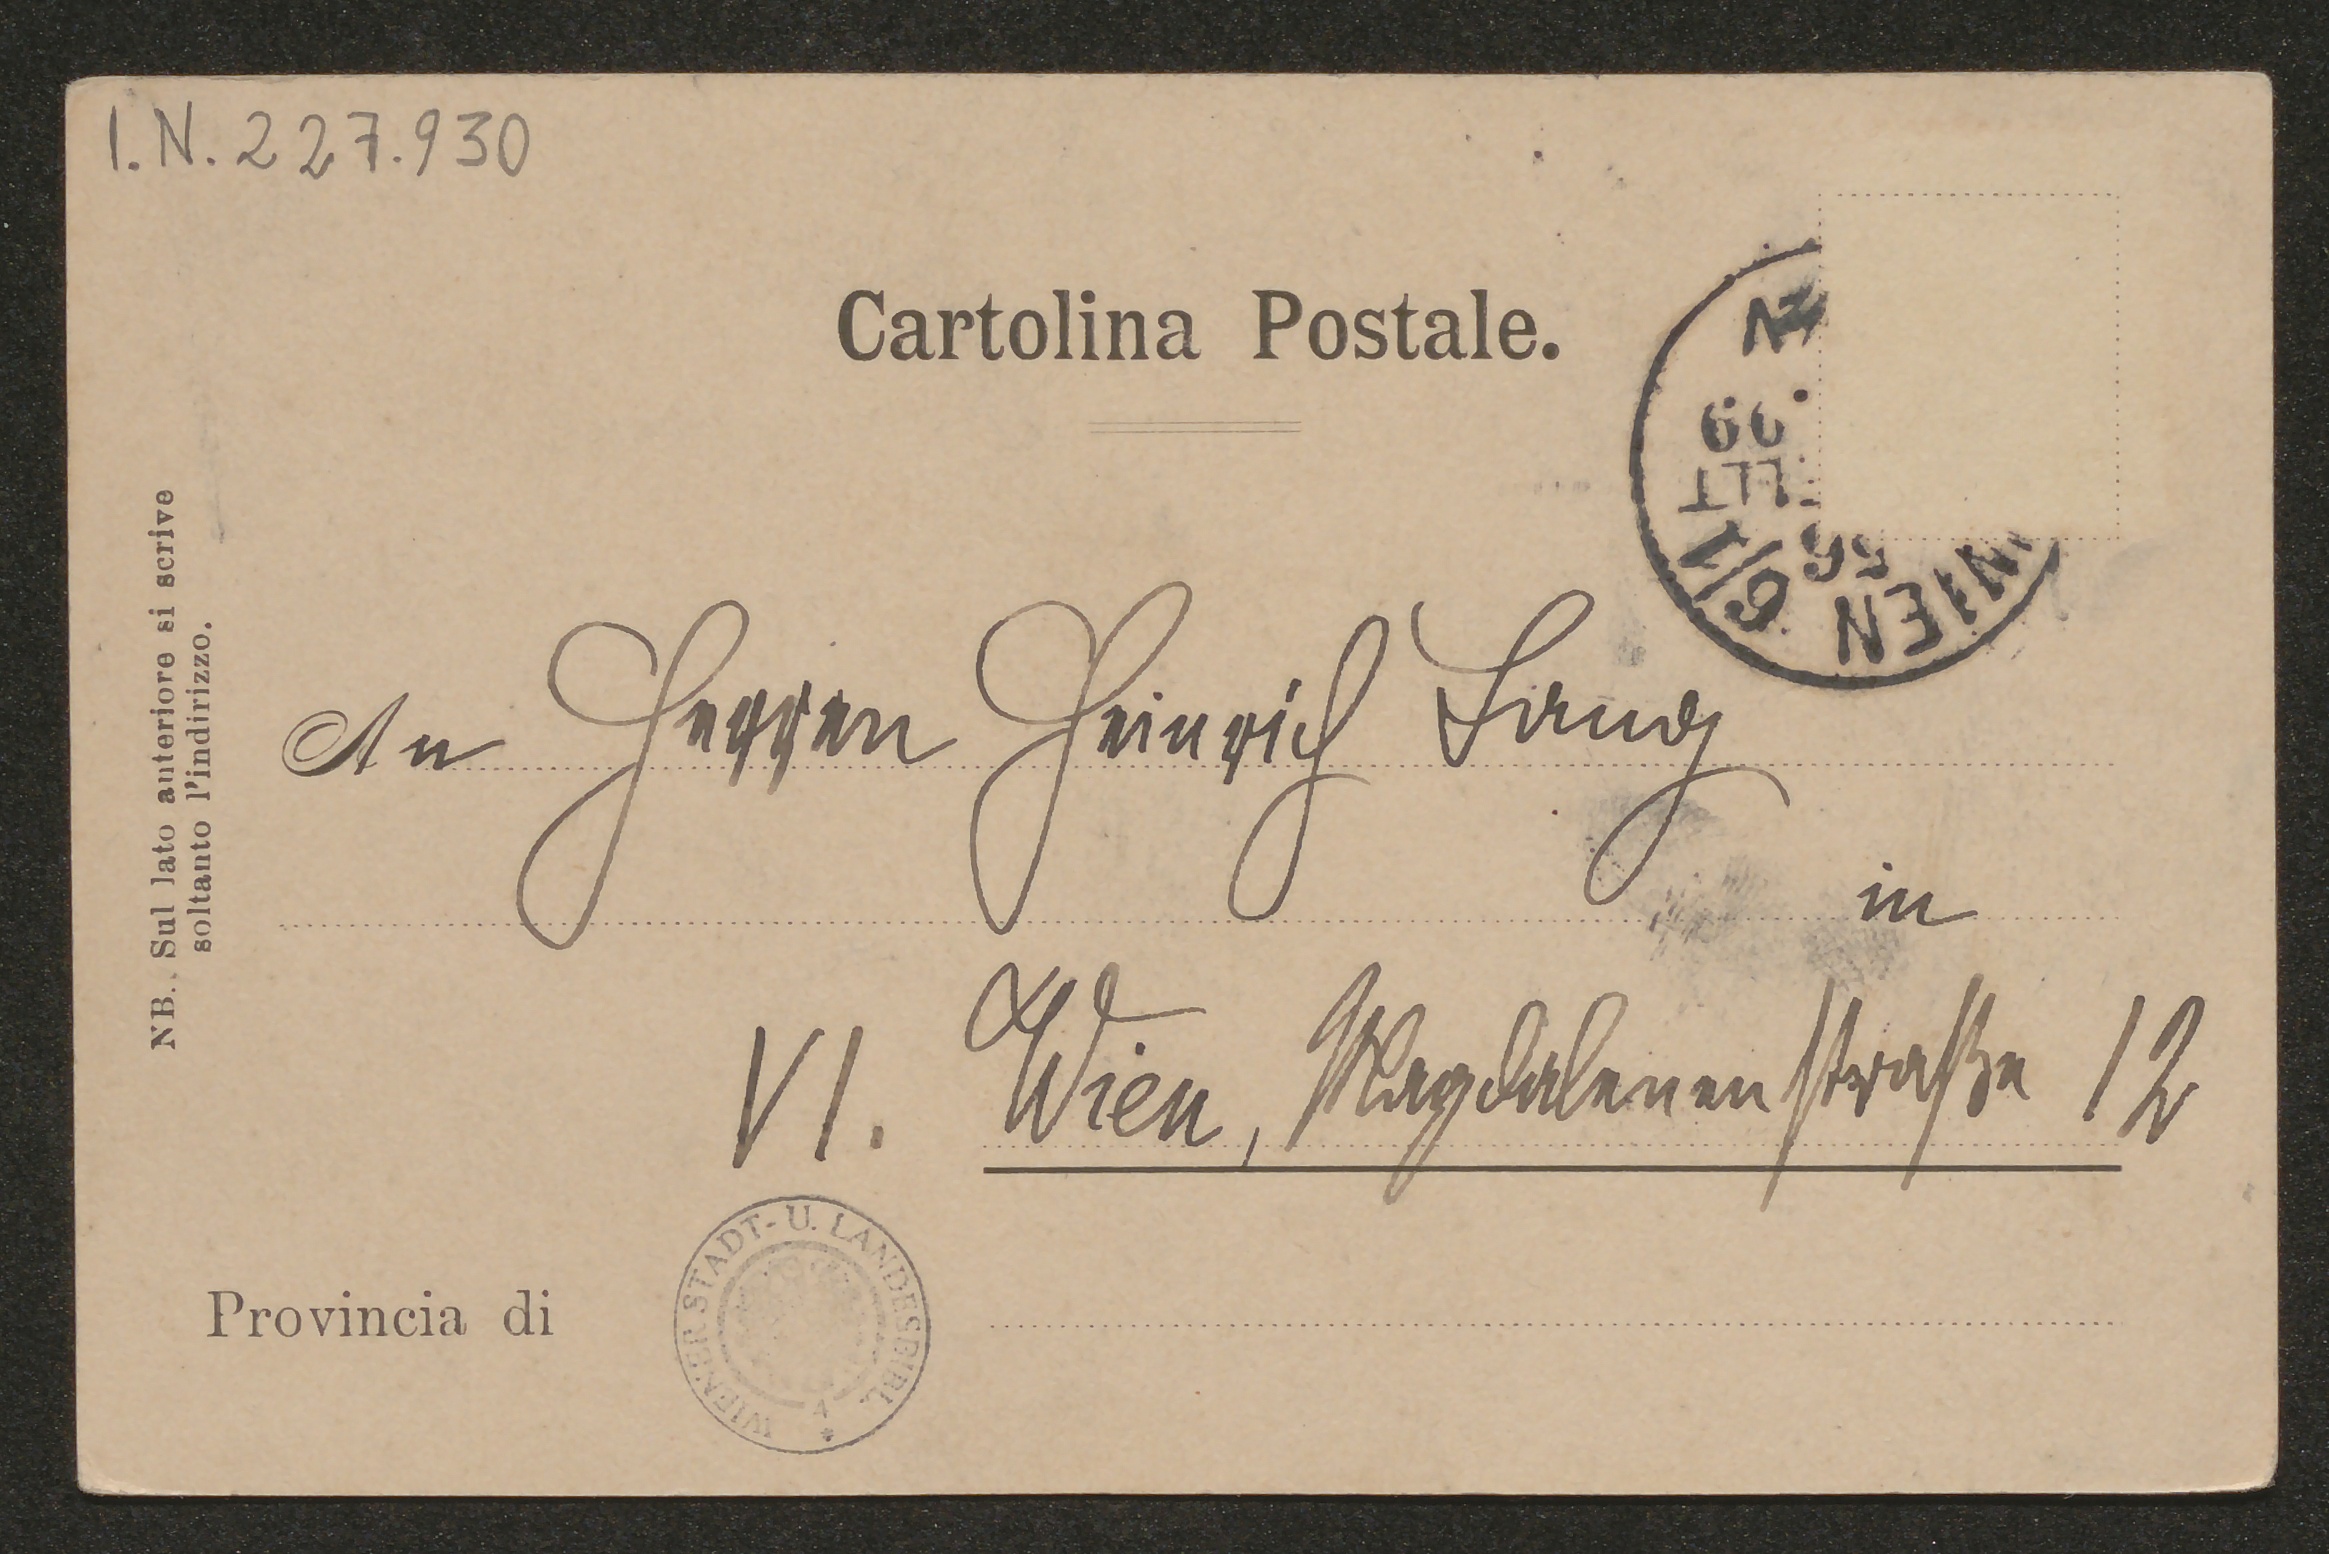 I.N. 227.930
Cartolina Postale.
NB. Sul lato anteriore si scrive
soltanto l'indirizzo.
WIEN
6/1
99
An Herren Heinrich Lang
in
VI. Wien, Magdalenenstraße 12
Provincia di
WIENER STADT- U. LANDESBIBL.